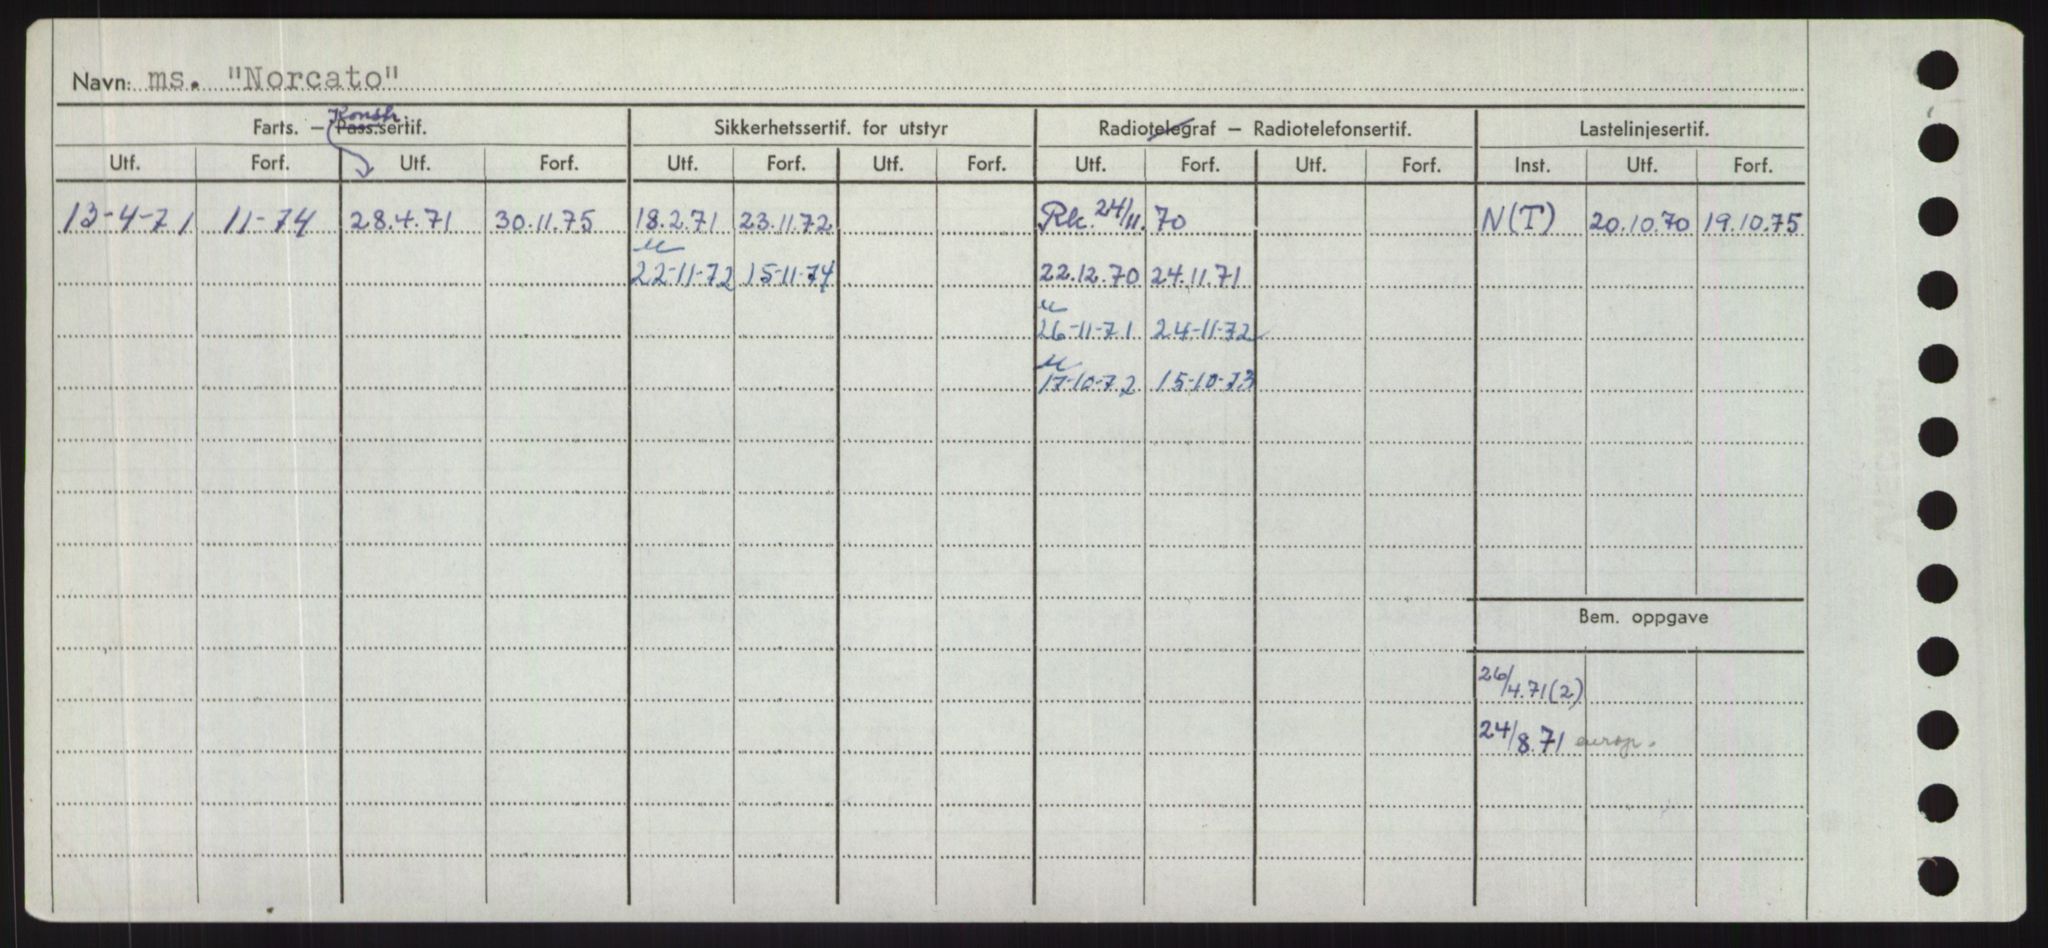 Navn: ms. "Norcato"
Konstr.
Farts. – Pass.sertif. Sikkerhetssertif. for utstyr Radiotelegraf – Radiotelefonsertif. Lastelinjesertif.
Utf. Forf. Utf. Forf. Utf. Forf. Utf. Forf. Utf. Forf. Utf. Forf. Inst. Utf. Forf.
13-4-71 11-74 28.4.71 30.11.75 18.2.71 23.11.72 Rk. 24/11.70 N(T) 20.10.70 19.10.75
22-11-72 15-11-74 22.12.70 24.11.71
26-11-71 24-11-72
17-10-72 15-10-73
Bem. oppgave
26/4.71(2)
24/8.71 europ.